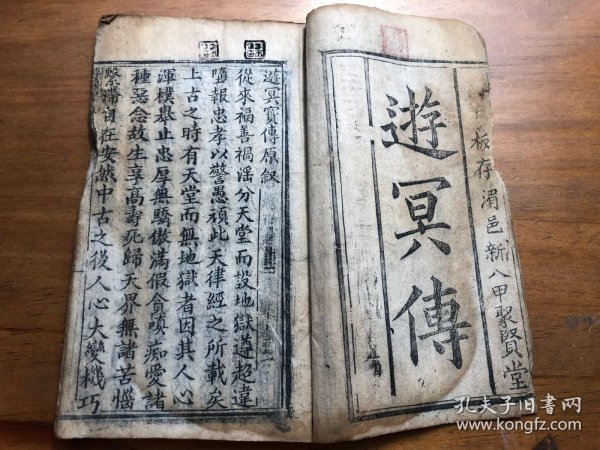 板存湄邑新八甲聚賢堂
遊冥傳
遊冥寶傳原敘
從來福善禍滛分天堂而設地獄遵超違
墮報忠孝以警愚頑此天律經之所載矣
上古之時有天堂而無地獄者因其人心
渾樸舉止忠厚無驕傲滿假貪嗔痴愛諸
種惡念故生享高壽死歸天界無諸苦惱
繫滯自在安然中古之後人心大變機巧
孔夫子旧书网
www.kongfz.com